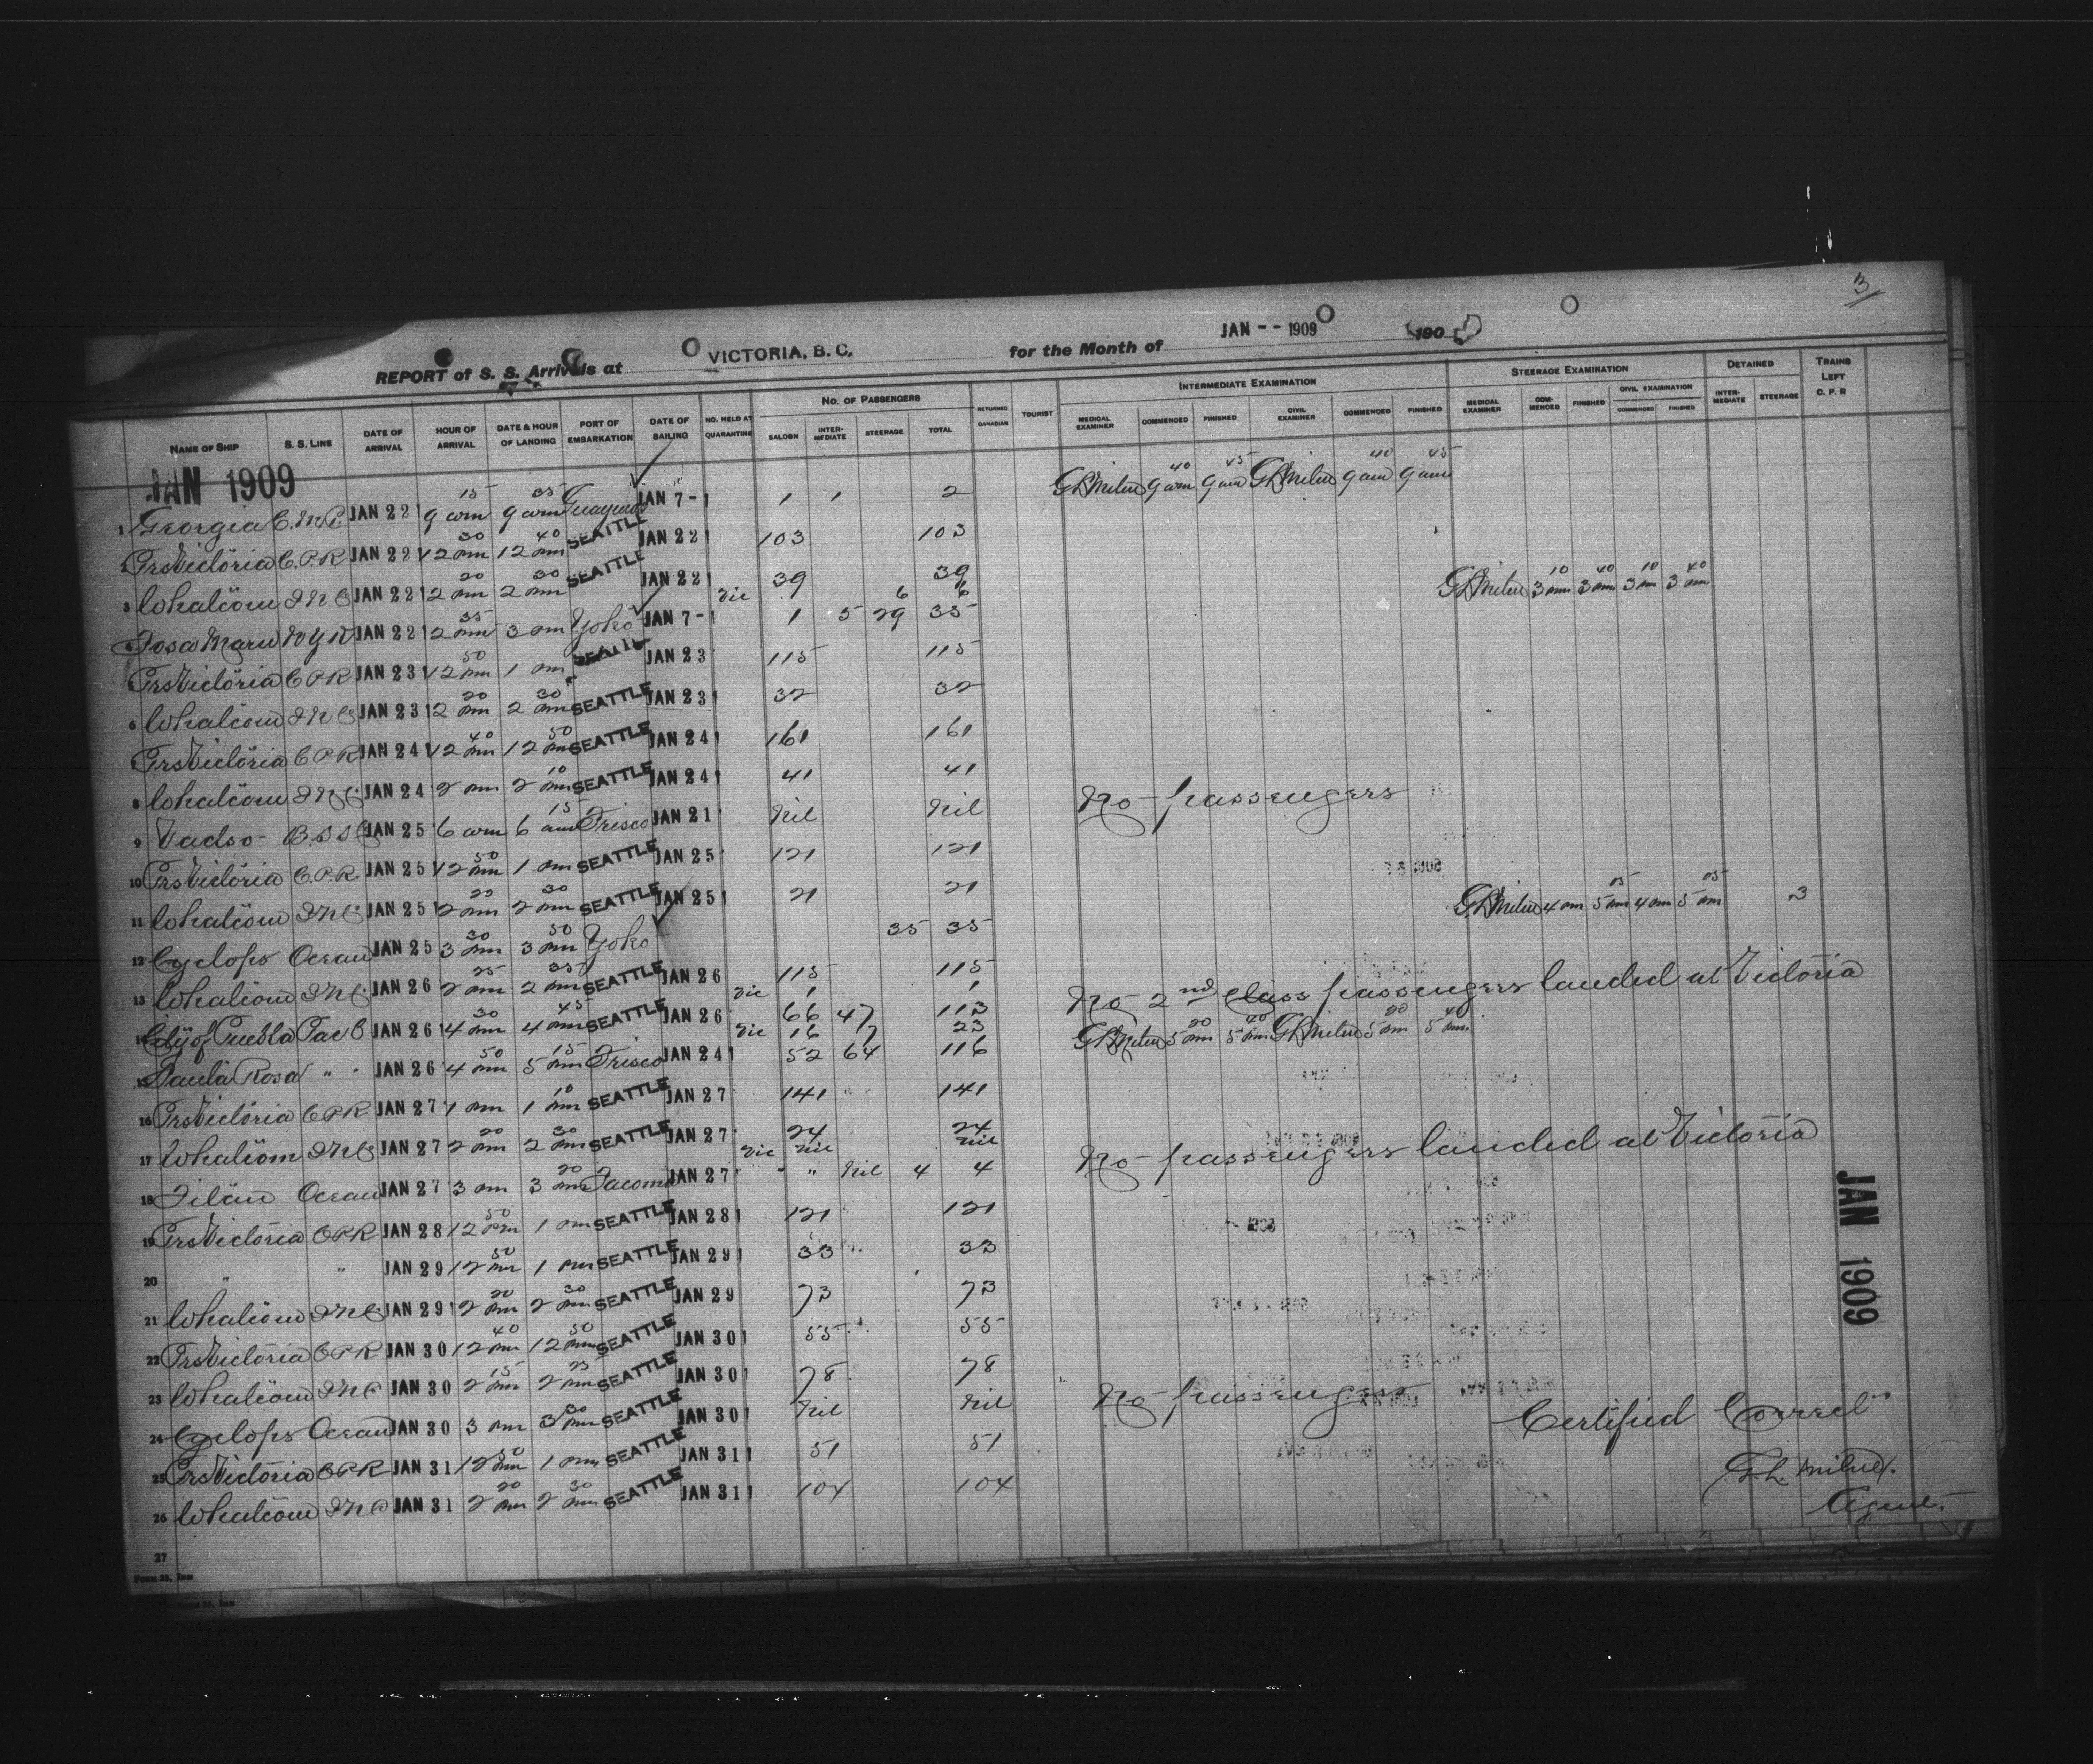 3
REPORT of S. S. Arrivals at VICTORIA, B. C. for the Month of JAN -- 1909 190
NAME OF SHIP S. S. LINE DATE OF ARRIVAL HOUR OF ARRIVAL DATE & HOUR OF LANDING PORT OF EMBARKATION DATE OF SAILING NO. HELD AT QUARANTINE NO. OF PASSENGERS SALOON INTER-MEDIATE STEERAGE TOTAL RETURNED CANADIAN TOURIST INTERMEDIATE EXAMINATION MEDICAL EXAMINER COMMENCED FINISHED CIVIL EXAMINER COMMENCED FINISHED STEERAGE EXAMINATION MEDICAL EXAMINER COM-MENCED FINISHED CIVIL EXAMINATION COMMENCED FINISHED DETAINED INTER-MEDIATE STEERAGE TRAINS LEFT C. P. R
JAN 1909
1 Georgia C.M.C. JAN 22 9 15 am 9 35 am Guaymas JAN 7 - 1 1 2 GLMilne 9 40 am 9 45 am GLMilne 9 40 am 9 45 am
2 PrsVictoria C.P.R JAN 22 12 30 pm 12 40 pm SEATTLE JAN 22 103 103
3 Whatcom INC JAN 22 2 20 pm 2 30 pm SEATTLE JAN 22 39 39
4 Tosa Maru NYK JAN 22 2 35 pm 3 pm Yoko JAN 7 - Vic 6 6 1 5 29 35 GLMilne 3 10 pm 3 40 pm 3 10 pm 3 40 pm
5 PrsVictoria CPR JAN 23 12 50 pm 1 pm SEATTLE JAN 23 115 115
6 Whatcom INC JAN 23 2 20 pm 2 30 pm SEATTLE JAN 23 32 32
7 PrsVictoria CPR JAN 24 12 40 pm 12 50 pm SEATTLE JAN 24 161 161
8 Whatcom INC JAN 24 2 pm 2 10 pm SEATTLE JAN 24 41 41
9 Vadso - B.SS JAN 25 6 am 6 15 am Frisco JAN 21 Nil Nil No passengers
10 PrsVictoria C.P.R. JAN 25 12 50 pm 1 pm SEATTLE JAN 25 121 121
11 Whatcom INC JAN 25 2 20 pm 2 30 pm SEATTLE JAN 25 21 21
12 Cyclops Ocean JAN 25 3 30 pm 3 50 pm Yoko 35 35 GLMilne 4 pm 5 05 pm 4 pm 5 05 pm 3
13 Whatcom INC JAN 26 2 25 pm 2 35 pm SEATTLE JAN 26 115 115
14 City of Puebla Pac C JAN 26 4 30 pm 4 45 pm SEATTLE JAN 26 Vic 1 1 66 47 113 No 2nd class passengers landed at Victoria
15 Santa Rosa " " JAN 26 4 50 pm 5 15 pm Frisco JAN 24 Vic 16 7 23 52 64 116 GLMilne 5 20 pm 5 40 pm GLMilne 5 20 pm 5 40 pm
16 PrsVictoria CPR JAN 27 1 pm 1 10 pm SEATTLE JAN 27 141 141
17 Whatcom INC JAN 27 2 20 pm 2 30 pm SEATTLE JAN 27 24 24
18 Titan Ocean JAN 27 3 pm 3 20 pm Tacoma JAN 27 Vic Nil Nil " " Nil 4 4 No passengers landed at Victoria
19 PrsVictoria CPR JAN 28 12 50 pm 1 pm SEATTLE JAN 28 121 121
20 " " JAN 29 12 50 pm 1 pm SEATTLE JAN 29 33 33
21 Whatcom INC JAN 29 2 20 pm 2 30 pm SEATTLE JAN 29 73 73
22 PrsVictoria CPR JAN 30 12 40 pm 12 50 pm SEATTLE JAN 30 55 55
23 Whatcom INC JAN 30 2 15 pm 2 25 pm SEATTLE JAN 30 78 78
24 Cyclops Ocean JAN 30 3 pm 3 30 pm SEATTLE JAN 30 Nil Nil No passengers
25 PrsVictoria CPR JAN 31 12 50 pm 1 pm SEATTLE JAN 31 51 51
26 Whatcom INC JAN 31 2 20 pm 2 30 pm SEATTLE JAN 31 104 104
27
JAN 1909
Certified Correct
G.L. Milne.
Agent.